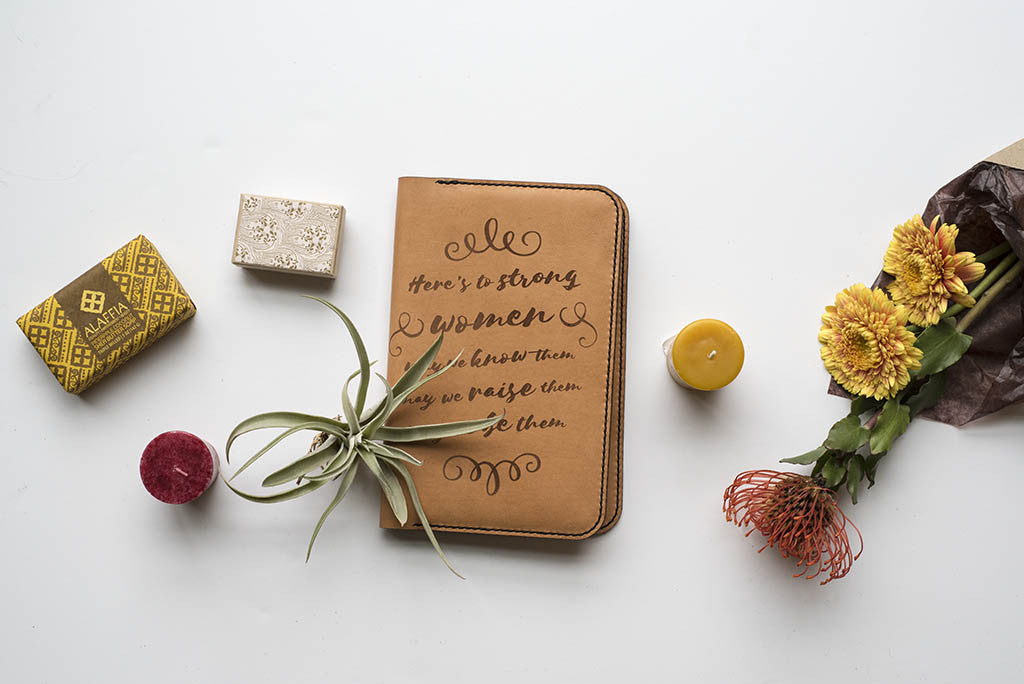 ALAFFIA
Here's to strong
women
know them
may we raise them
them